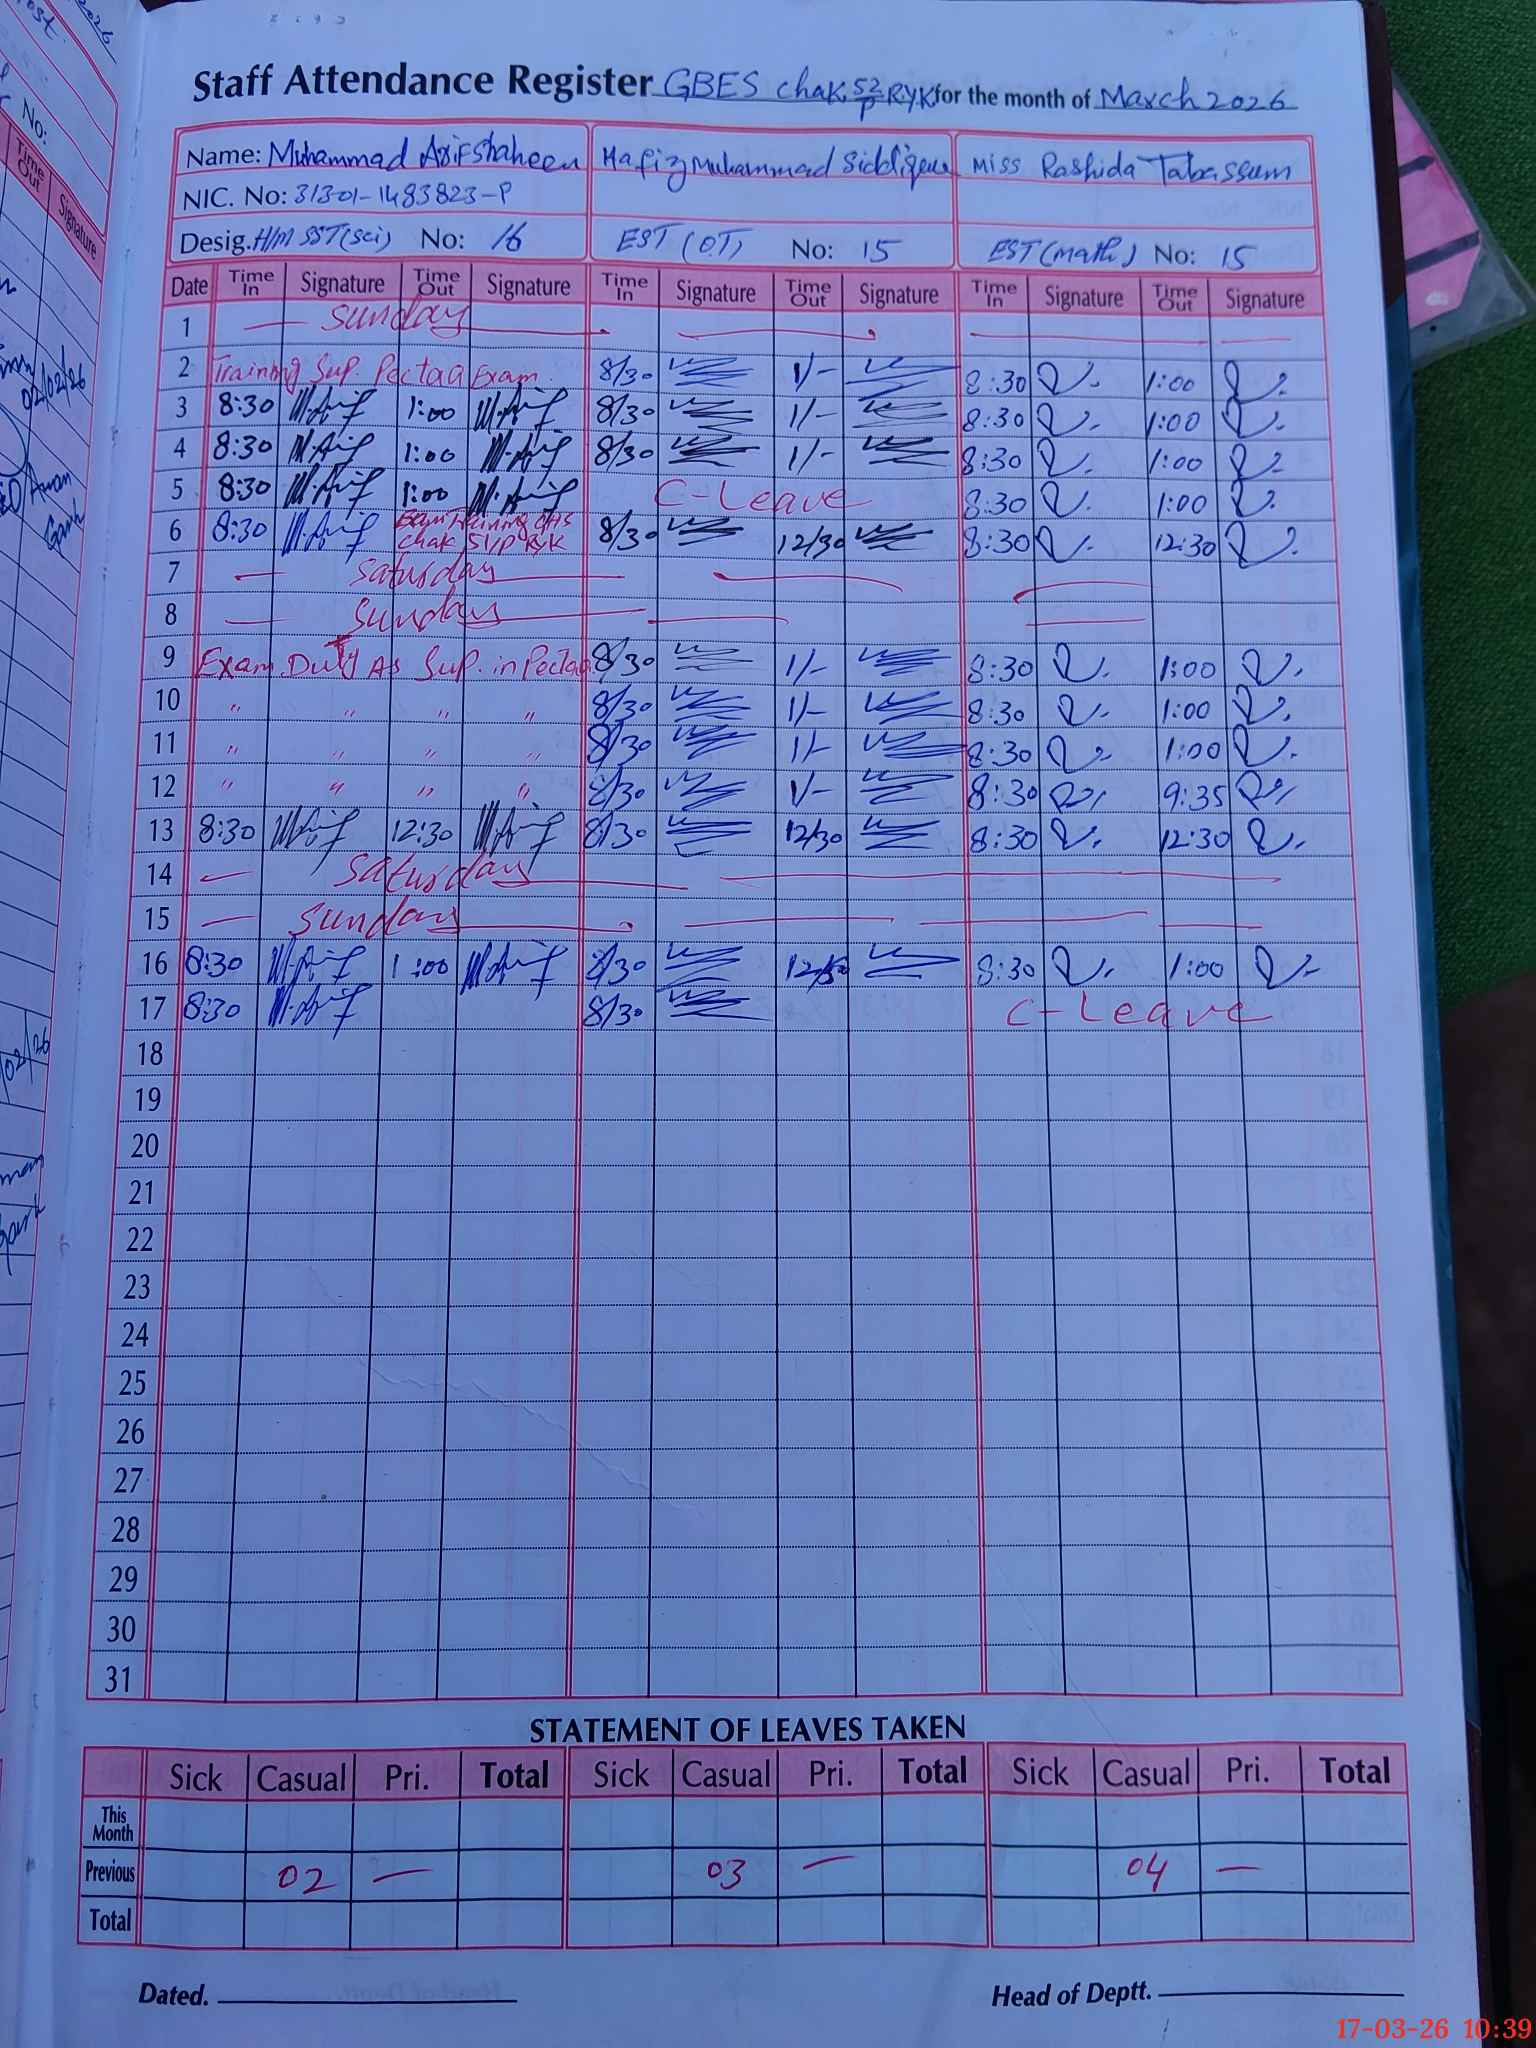 Staff Attendance Register GBES Chak 52/P RYK for the month of March 2026
Name: Muhammad Arif Shaheen Hafiz Muhammad Siddique Miss Rashida Tabassum
NIC. No: 31301-1483823-9
Desig. H/M SST(sci) No: 16 EST (OT) No: 15 EST (math) No: 15
Date Time In Signature Time Out Signature Time In Signature Time Out Signature Time In Signature Time Out Signature
1 Sunday
2 Training Sup. Pectaa Exam 8/30 1/- 8:30 1:00
3 8:30 M.Arif 1:00 M.Arif 8/30 1/- 8:30 1:00
4 8:30 M.Arif 1:00 M.Arif 8/30 1/- 8:30 1:00
5 8:30 M.Arif 1:00 M.Arif C-Leave 8:30 1:00
6 8:30 M.Arif Exam Training GHS Chak 51/P RYK 8/30 12/30 8:30 12:30
7 Saturday
8 Sunday
9 Exam Duty As Sup. in Pectaa 8/30 1/- 8:30 1:00
10 " " " " 8/30 1/- 8:30 1:00
11 " " " " 8/30 1/- 8:30 1:00
12 " " " " 8/30 1/- 8:30 9:35
13 8:30 M.Arif 12:30 M.Arif 8/30 12/30 8:30 12:30
14 Saturday
15 Sunday
16 8:30 M.Arif 1:00 M.Arif 8/30 8:30 1:00
17 8:30 M.Arif 8/30 C-Leave
18
19
20
21
22
23
24
25
26
27
28
29
30
31
STATEMENT OF LEAVES TAKEN
Sick Casual Pri. Total Sick Casual Pri. Total Sick Casual Pri. Total
This Month
Previous 02 — 03 — 04 —
Total
Dated. Head of Deptt.
17-03-26 10:39